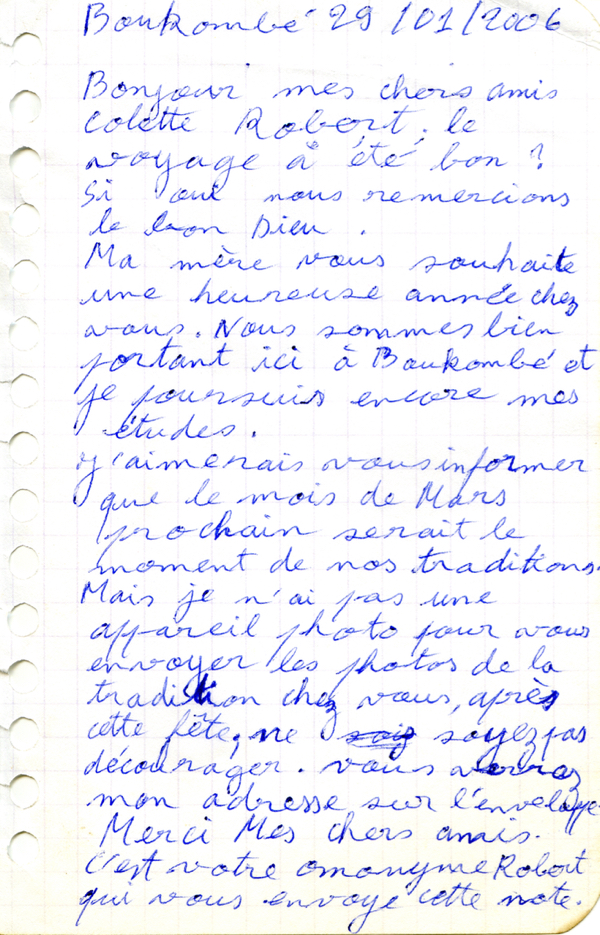 Boukombé 29/01/2006
Bonjour mes chers amis
Colette Robert. le
voyage à été bon ?
Si oui nous remercions
le bon Dieu .
Ma mère vous souhaite
une heureuse année chez
vous. Nous sommes bien
portant ici à Boukombé et
je poursuis encore mes
études.
J'aimerais vous informer
que le mois de Mars
prochain serait le
moment de nos traditions.
Mais je n'ai pas une
appareil photo pour vous
envoyer les photos de la
tradition chez vous, après
cette fête, ne sois soyez pas
décourager. vous verrez
mon adresse sur l'enveloppe
Merci Mes chers amis.
C'est votre omonyme Robert
qui vous envoye cette note.